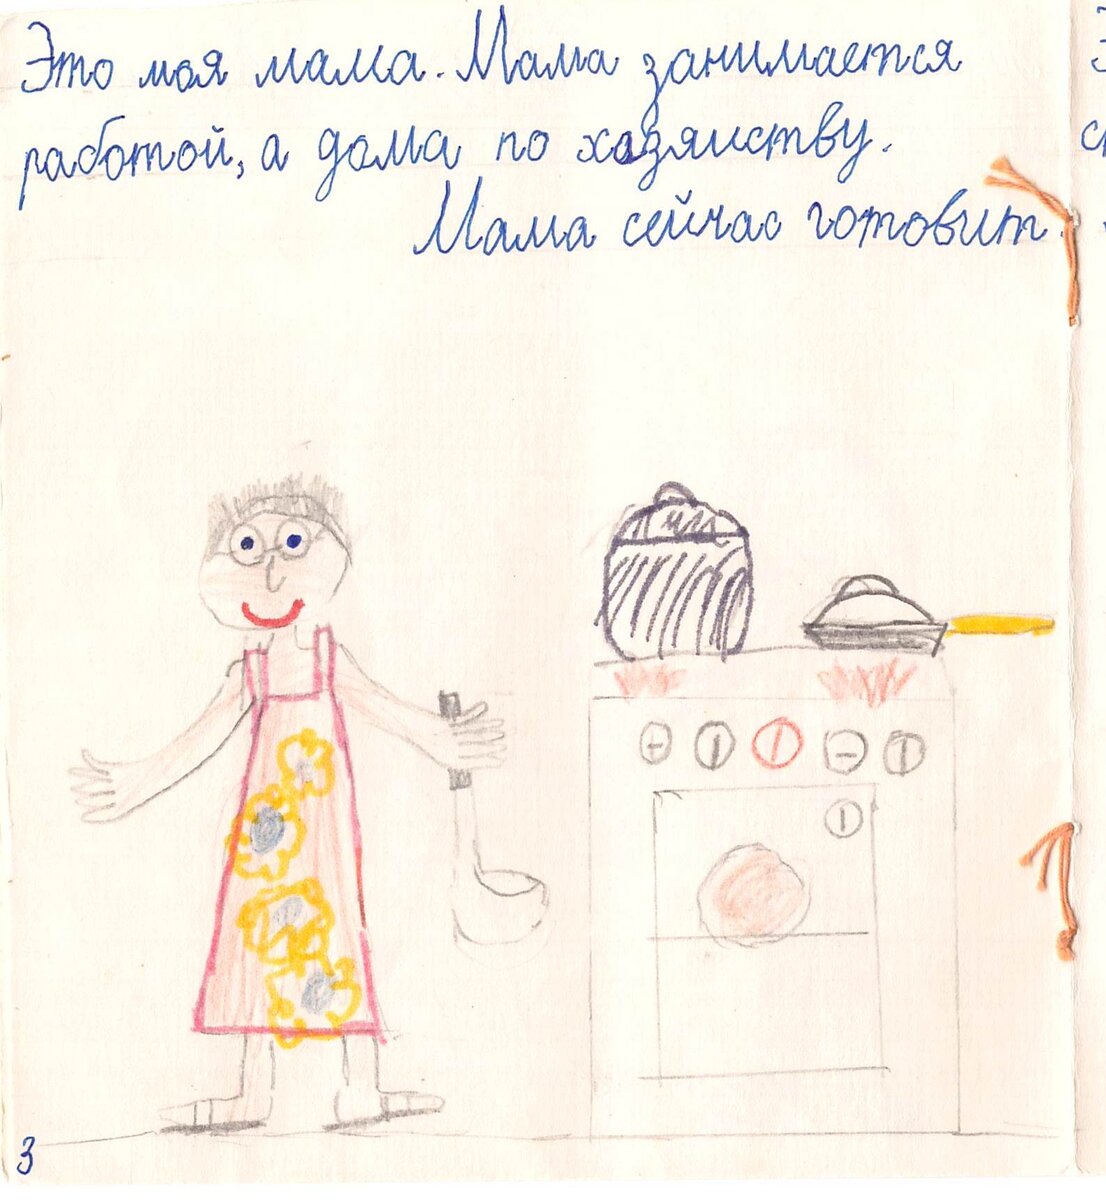 Это моя мама. Мама занимается
работой, а дома по хозяиству.
Мама сейчас готовит.
3